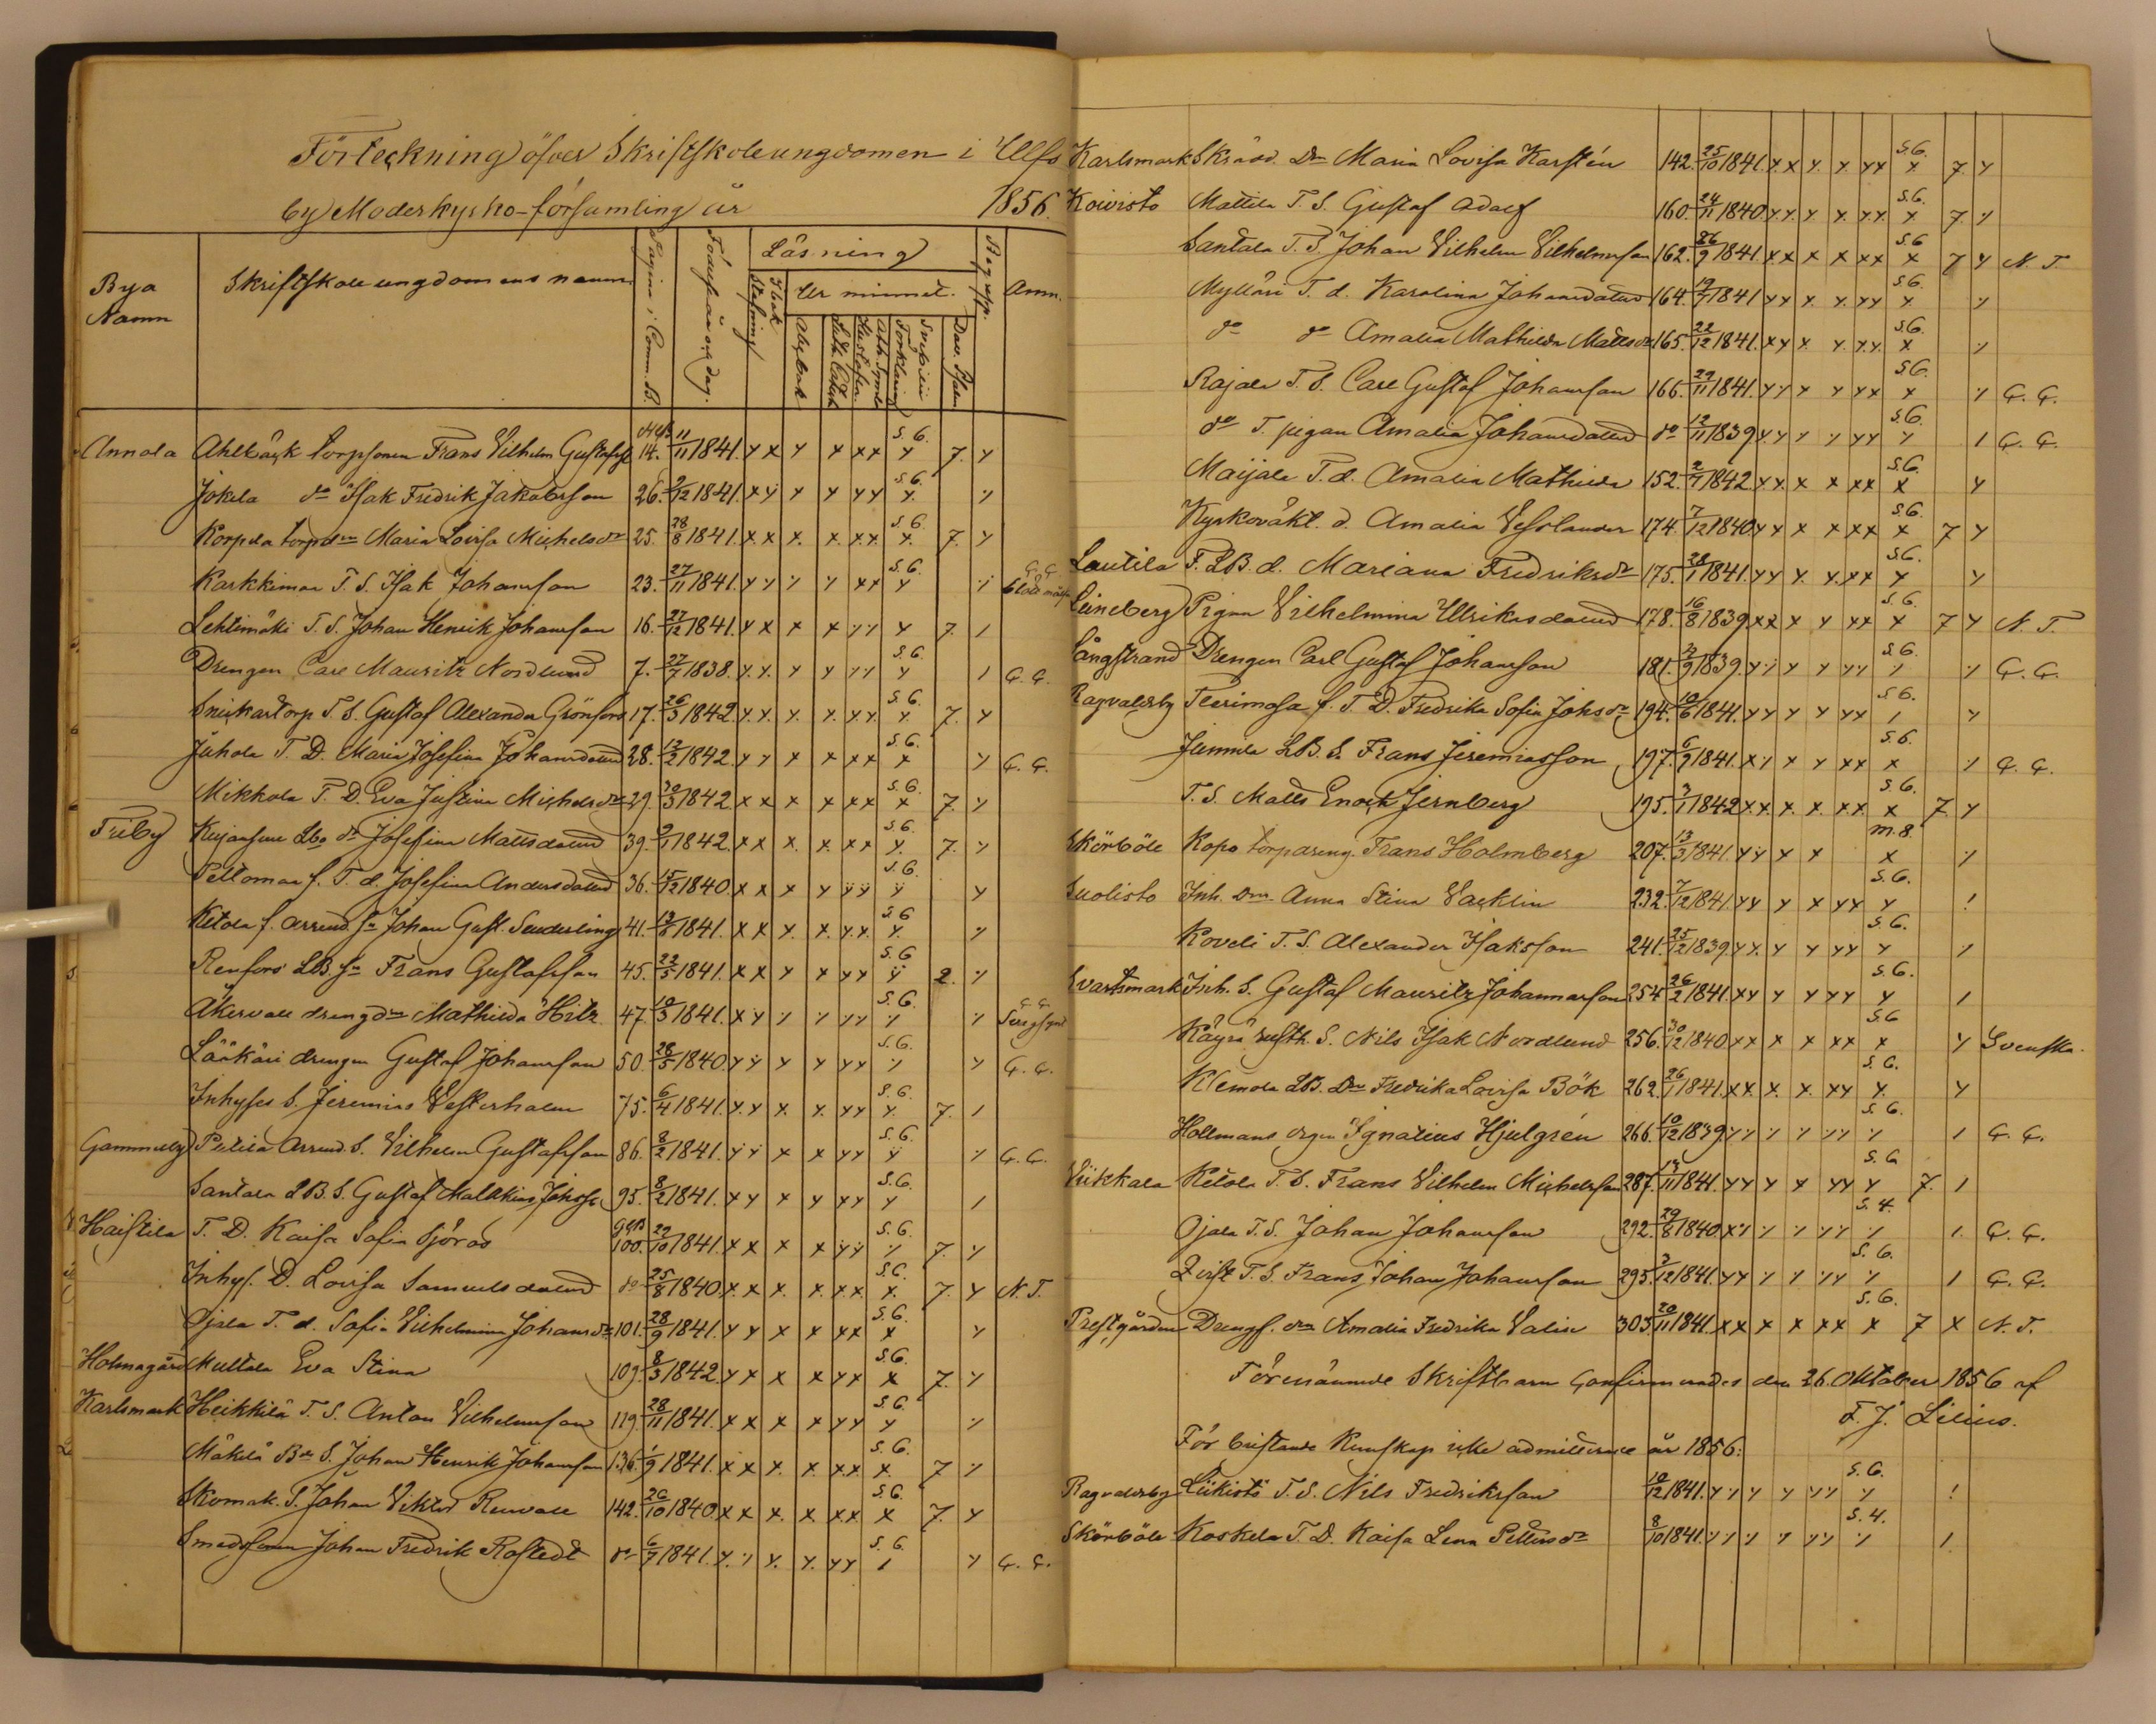 Förteckning öfver Skriftskoleungdomen i Ulfs
by Moderkyrko-församling år 1856.
Bya Namn Skriftskoleungdomens namn Pagina i Comm. B. Födelse år och dag. Läsning Begrepp. Anm.
Stafning I bok Ur minnet.
Abcbok Luth. Catech. Hustaflan Ath. Symb. Förklaring Svebilii Dav. Psalm
Annola Ahlbäck torpsonen Frans Vilhelm Gustafss 14. 11/11 1841. x x x x x x S.6. x 7. x
Jokela do Isak Fredrik Jakobsson 26. 9/12 1841. x x x x x x S.6. x x
Korpela torp dn Maria Lovisa Michelsdr 25. 28/8 1841. x x x x x x S.6. x 7. x
Karkkiman T. S. Isak Johansson 23. 27/11 1841. x x x x x x S.6. x x C. C.
Lehtimäki T. S. Johan Henrik Johansson 16. 27/12 1841. x x x x x x x 7. /
Drengen Carl Mauritz Nordlund 7. 27/7 1838. x x x x x x S.6. x / C. C.
Snickartorp T. S. Gustaf Alexander Grönfors 17. 26/3 1842 x x x x x x S.6. x 7. x
Juhola T. D. Maria Josefina Johansdotter 28. 12/2 1842. x x x x x x S.6. x x C. C.
Mikkola T. D. Eva Justina Michelsdr 29. 30/3 1842 x x x x x x S.6. x 7. x
Friby Josefina Mattsdotter 39. 9/1 1842. x x x x x x S.6. x 7. x
Peltomaa f. T. d. Josefina Andersdotter 36. 15/12 1840. x x x x x x S.6. x x
Ketola f. arrend. sn Johan Gust. Senderling 41. 13/8 1841. x x x x x x S.6 x x
Renfors LB. sn Frans Gustafsson 45. 22/5 1841. x x x x x x S.6 x 2. x
Åkervall dreng dn Mathilda Hitz 47. 10/3 1841. x x x x x x S.6. x x C. C.
Lääkäri drengen Gustaf Johansson 50. 28/5 1840 x x x x x x S.6. x x C. C.
Inhyses S. Jeremias Vesterholm 75. 6/4 1841. x x x x x x S.6. x 7. /
Gammelby Pietilä Arrend. S. Vilhelm Gustafsson 86. 8/2 1841. x x x x x x S.6. x x C. C.
Santala LB. S. Gustaf Malakias Johsso 95. 8/2 1841. x x x x x x S.6. x /
Haistila T. D. Kaisa Sofia Sjöros 100. 22/10 1841. x x x x x x S.6. x 7. x
Inhys. D. Lovisa Samuelsdotter do 25/8 1840. x x x x x x S.6. x 7. x N. T.
Ojala T. d. Sofia Vilhelmina Johansdr 101. 28/9 1841. x x x x x x S.6. x x
Holmagård Mullola Eva Stina 109. 8/3 1842. x x x x x x S.6. x 7. x
Karlsmark Heikkilä T. S. Anton Vilhelmsson 119. 28/11 1841. x x x x x x S.6. x x
Mäkelä Bde S. Johan Henrik Johansson 136. 1/9 1841. x x x x x x S.6. x 7 x
Skomak. S. Johan Viktor Renvall 142. 26/10 1840 x x x x x x S.6. x 7. x
Smedssonen Johan Fredrik Rostedt do 6/7 1841. x x x x x x S.6. / x C. C.
Karlsmark Skrädd. Dn Maria Lovisa Karstén 142. 25/10 1841. x x x x x x S.6. x 7 x
Koivisto Mattila T. S. Gustaf Adolf 160. 24/11 1840. x x x x x x S.6. x 7. x
Santala T. S. Johan Vilhelm Vilhelmsson 162. 26/9 1841. x x x x x x S.6 x 7 x N. T.
Mylläri T. d. Karolina Johansdotter 164. 19/7 1841 x x x x x x S.6. x x
do do Amalia Mathilda Mattsdr 165. 22/12 1841. x x x x x x S.6. x x
Rajala T. S. Carl Gustaf Johansson 166. 29/11 1841. x x x x x x S.6. x x C. C.
do T. pigan Amalia Johansdotter do 12/11 1839 x x x x x x S.6. x / C. C.
Maijala T. d. Amalia Mathilda 152. 2/7 1842 x x x x x x S.6. x x
Kyrkoväkt. d. Amalia Vesslander 174. 7/12 1840 x x x x x x S.6. x 7 x
Lautila F. LB. d. Mariana Fredriksdr 175. 28/1 1841. x x x x x x S.6. x x
Leineberg Pigan Vilhelmina Ulrikasdotter 178. 16/8 1839. x x x x x x S.6. x 7 x N. T.
Långstrand Drengen Carl Gustaf Johansson 181. 3/9 1839. x x x x x x S.6. x x C. C.
Ragvaldsby Teerimosa f. T. D. Fredrika Sofia Johsdr 194. 10/6 1841. x x x x x x S.6. / x
Junnila LB. S. Frans Jeremiasson 197. 6/9 1841. x x x x x x S.6. x x C. C.
T. S. Matts Enock Jernberg 195. 3/11 1842 x x x x x x S.6. x 7. x
Skörböle Kopo torpdreng. Frans Holmberg 207. 13/3 1841. x x x x m.8. x x
Suolisto Inh. Dn. Anna Stina Vacklin 232. 7/12 1841. x x x x x x S.6. x !
Koveli T. S. Alexander Isaksson 241. 25/12 1839 x x x x x x S.6. x /
Svartsmark Inh. S. Gustaf Mauritz Johannesson 254 26/2 1841. x x x x x x S.6. x /
Käyrä rusth. S. Nils Isak Nordlund 256. 30/12 1840 x x x x x x S.6 x x Svenska.
Klemola LB. Dn Fredrika Lovisa Bök 262. 26/1 1841. x x x x x x S.6. x x
Hollmans drgen Ignatius Hjulgrén 266. 10/12 1839 x x x x x x S.6. x / C. C.
Viikkala Ketola T. S. Frans Vilhelm Michelsson 287. 13/11 1841. x x x x x x S.6 x 7. /
Ojala T. S. Johan Johansson 292. 29/8 1840. x x x x x x S.4. x / C. C.
T. S. Frans Johan Johansson 295. 3/12 1841. x x x x x x S.6. x / C. C.
Prestgården Drengs. dn Amalia Fredrika Valin 303. 20/11 1841. x x x x x x S.6. x 7 x N. T.
Förenämnde Skriftbarn Confirmerades den 26. Oktober 1856 af
F. J. Lilius.
För bristande Kunskap icke admitterade år 1856:
Ragvaldsby Liikisto T. S. Nils Fredriksson 10/12 1841. x x x x x x S.6. x !
Skörböle Koskela T. D. Kaisa Lena Pettersdr 8/10 1841. x x x x x x S.4. x /.